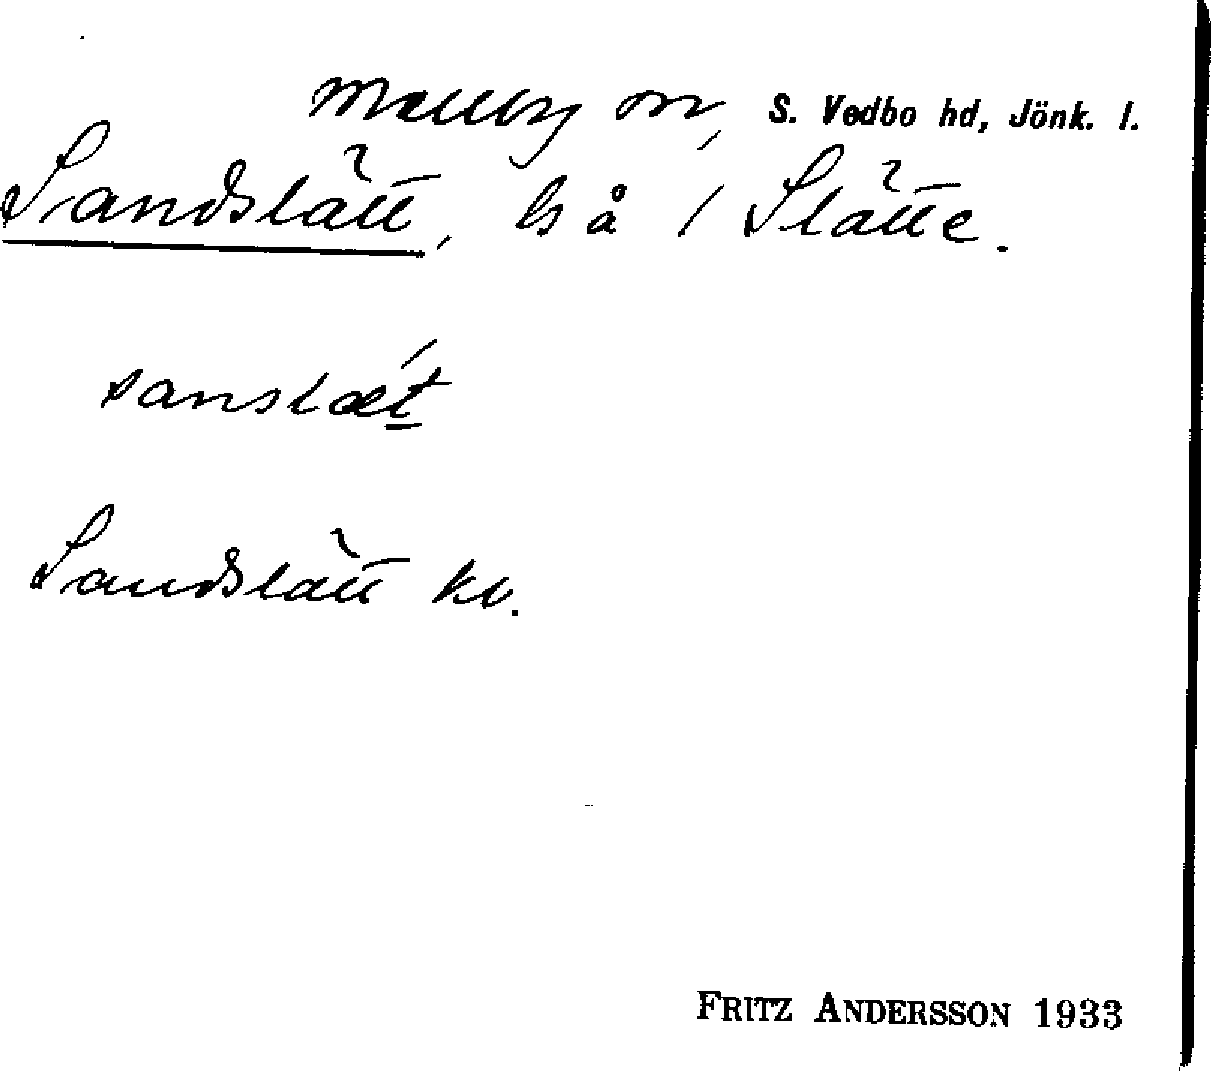 Mellby sn, S. Vedbo hd, Jönk. l.
Sandslätt, ls å 1 Slätte.
sanslæt
Sandslätt kv.
FRITZ ANDERSSON 1933